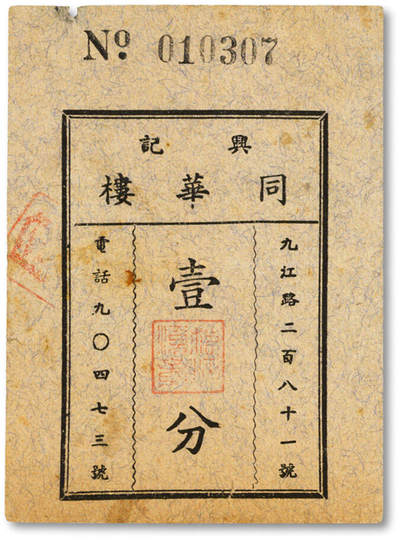 No. 010307
興記
同華樓
九江路二百八十一號
壹分
電話九〇四七三號